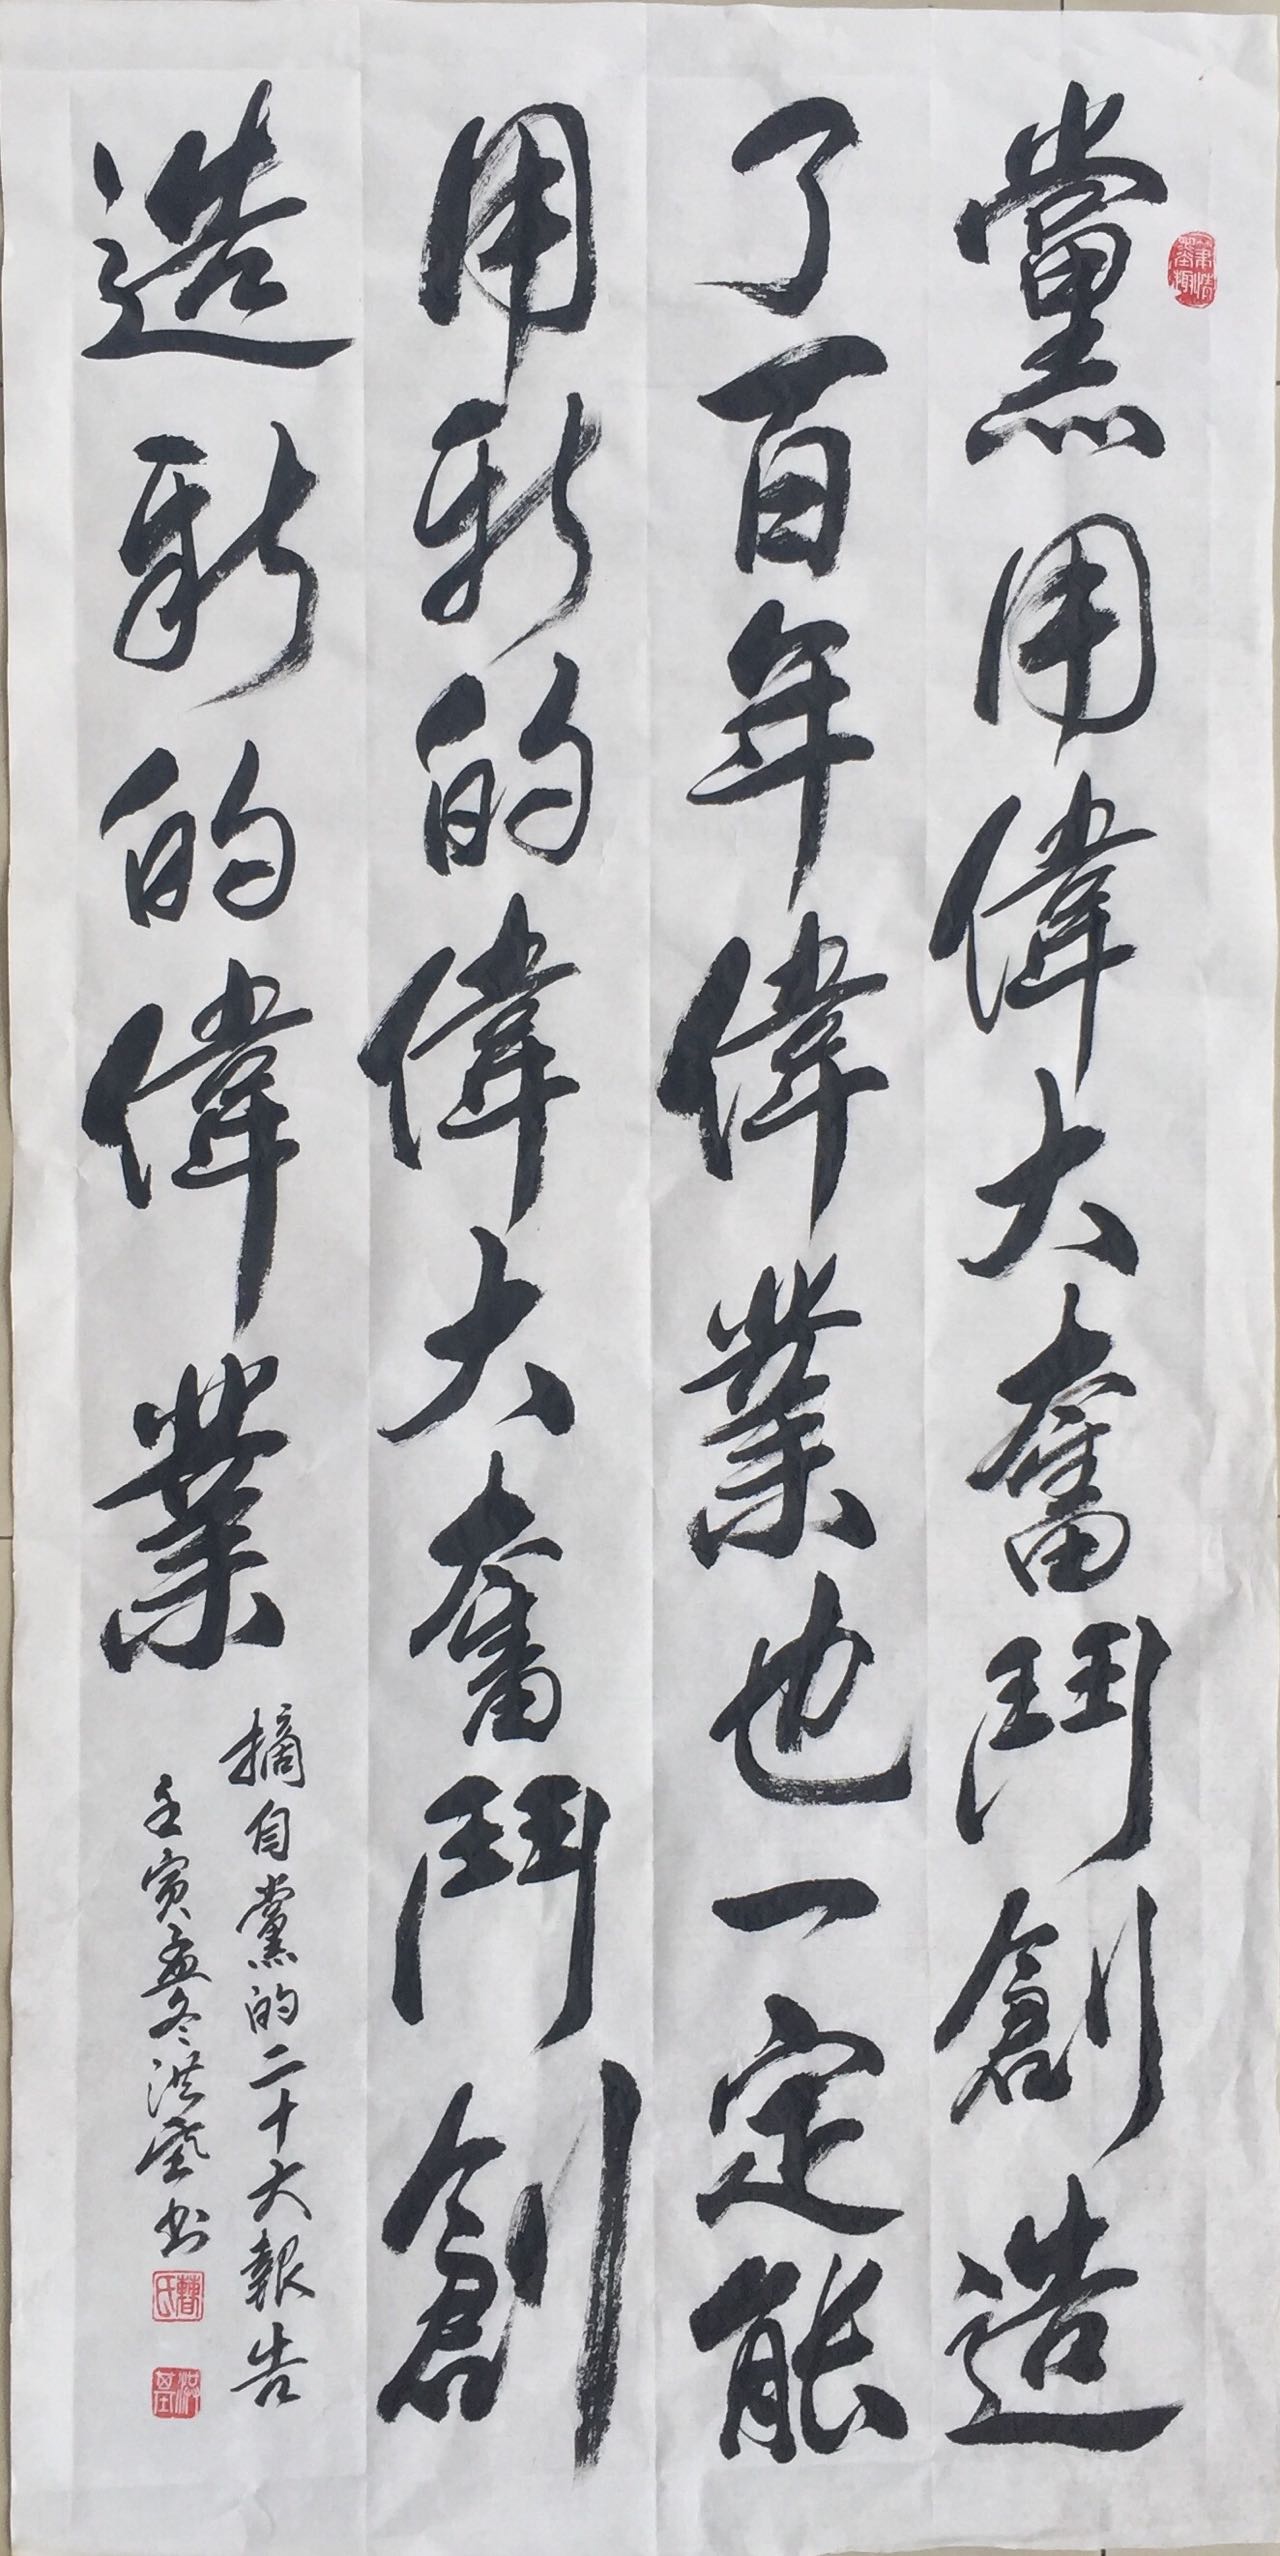 黨用偉大奮鬥創造
了百年偉業也一定能
用新的偉大奮鬥創
造新的偉業
摘自黨的二十大報告
壬寅孟冬洪
書
曹氏